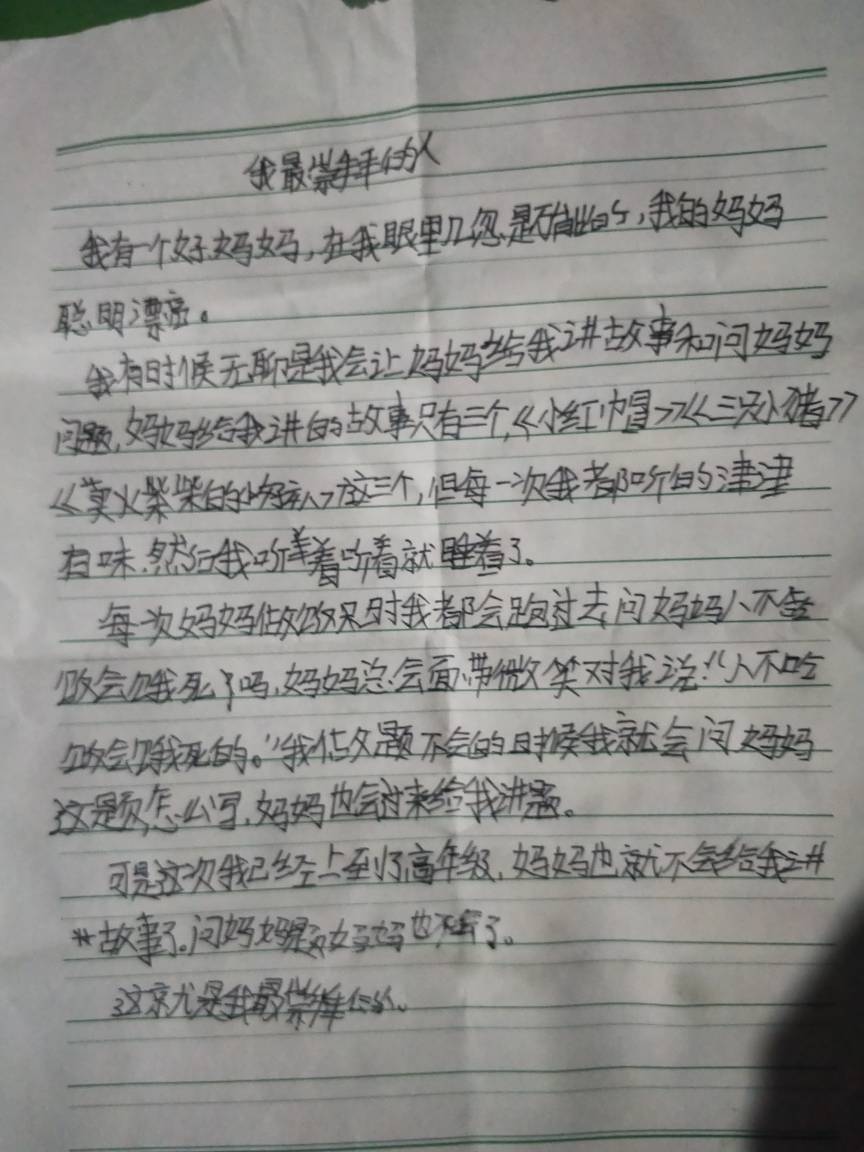 我最崇拜的人
我有一个好妈妈,在我眼里几是的,我的妈妈
聪明漂亮。
我有时候无聊是我会让妈妈给我讲故事和问妈妈
问题,妈妈给我讲的故事只有三个,《小红巾冒》《三只小猪》
《卖火柴的》这三个,但每一次我都听的津津
有味.然后我听着听着就睡着了。
每次妈妈做饭时我都会跑过去问妈妈人不吃
饭会饿死了吗,妈妈总会面带微笑对我说:"人不吃
饭会饿死的。"我做题不会的时候我就会问妈妈
这题怎么写,妈妈也会过来给我讲题。
可是这次我已经上到了高年级,妈妈也就不会给我讲
故事了。问妈妈题妈妈也不会了。
这就是我最崇拜的人.